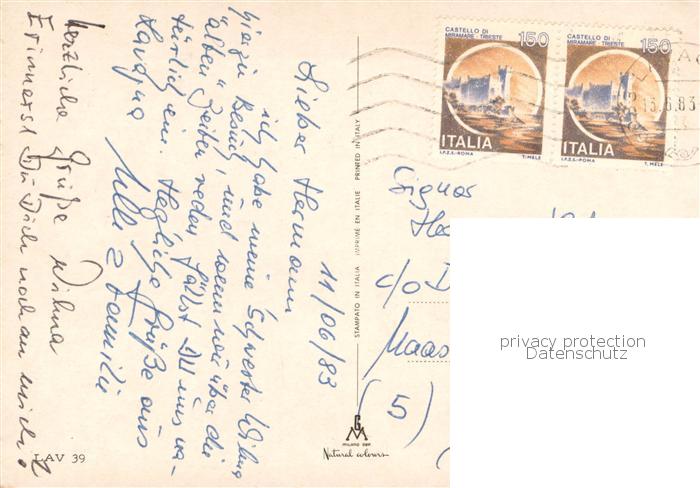 11/06/83
Lieber Hermann
ich habe meine Schwester Wilma
hier zu Besuch, und wenn wir über die
"alten" Zeiten reden, fällst Du uns na-
türlich ein. Herzliche Grüße aus
Lavagna
Familie
Herzliche Grüße Wilma
Erinnerst Du Dich noch an mich?
LAV 39
STAMPATO IN ITALIA IMPRIMÉ EN ITALIE PRINTED IN ITALY
GM
MILANO
Natural colours
CASTELLO DI
MIRAMARE - TRIESTE
150
ITALIA
I.P.Z.S.-ROMA T. MELE
CASTELLO DI
MIRAMARE - TRIESTE
150
ITALIA
I.P.Z.S.-ROMA T. MELE
13.6.83
Signor
c/o D
Maas
(5)
privacy protection
Datenschutz